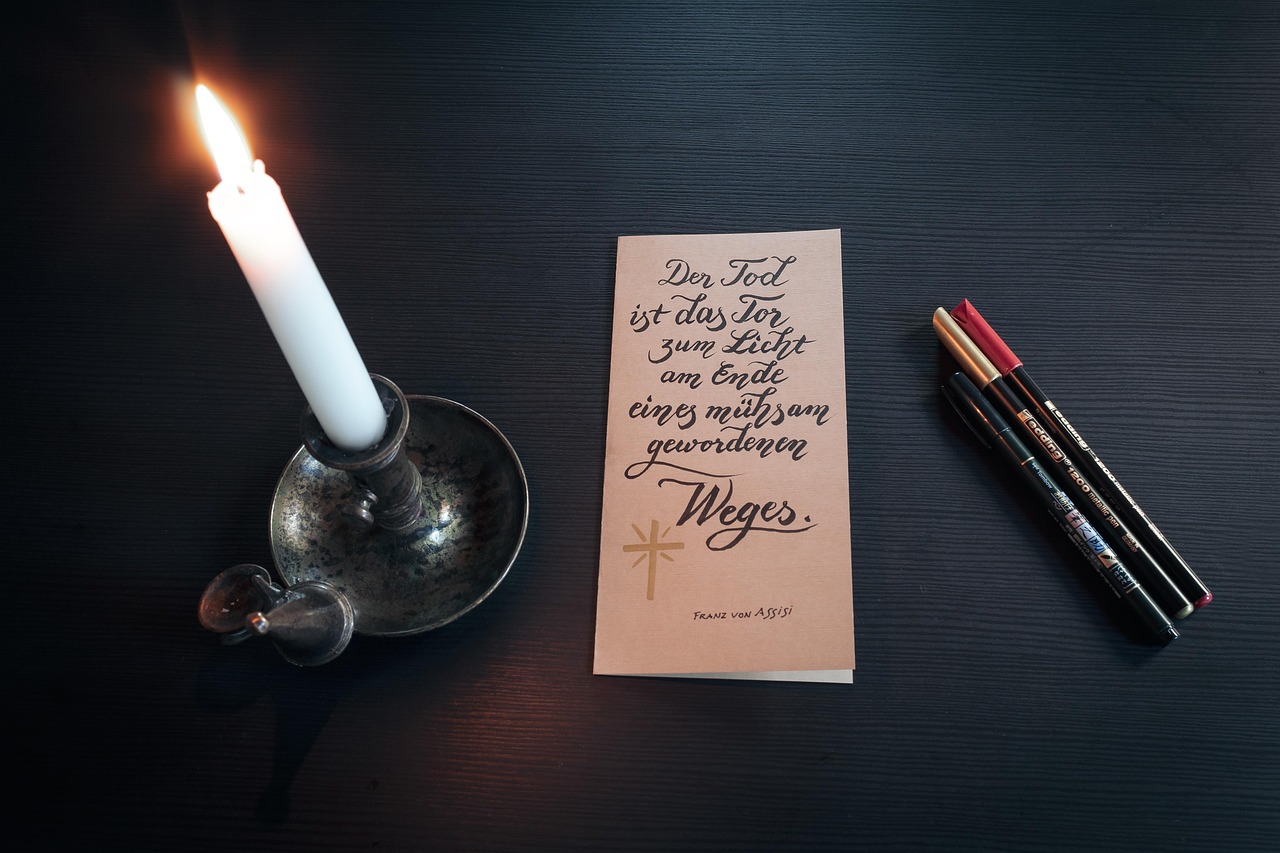 Der Tod
ist das Tor
zum Licht
am Ende
eines mühsam
gewordenen
Weges.
FRANZ VON ASSISI
edding
1200 metallic pen
edding
1200